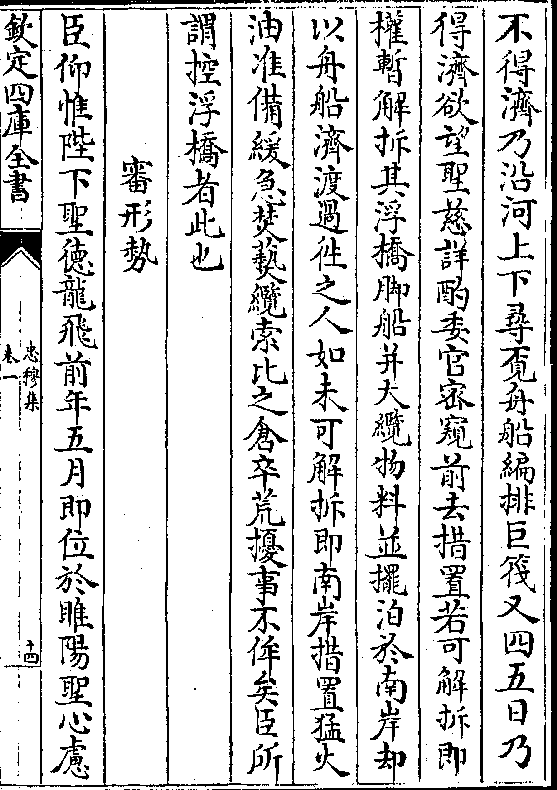 不得濟乃沿河上下尋覔舟船編排巨筏又四五日乃
得濟欲望聖慈詳酌委官宻窺前去措置若可解拆即
權暫解拆其浮橋脚船并大纜物料並擺泊於南岸却
以舟船濟渡過徃之人如未可解拆即南岸措置猛火
油准備緩急焚爇纜索比之倉卒荒擾事不侔矣臣所
謂控浮橋者此也
審形勢
臣仰惟陛下聖徳龍飛前年五月即位於睢陽聖心慮
欽定四庫全書
忠穆集
卷一
十四